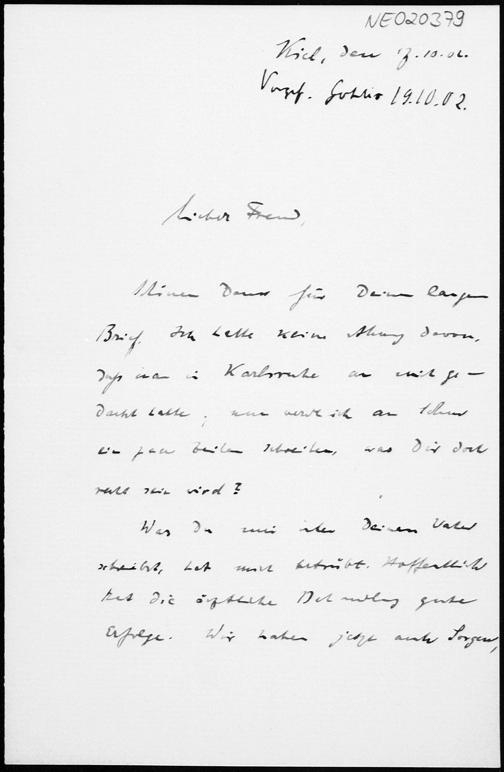 NE020379
Kiel, den 17.10.02.
19.10.02.
Lieber Freund,
Meinen Dank für Deinen langen
Brief. Ich hatte keine Ahnung davon,
daß man in Karlsruhe an mich ge-
dacht hatte; nun werde ich an
ein paar Zeilen schreiben, was Dir doch
recht sein wird?
Was Du mir über Deinen Vater
schreibst, hat mich betrübt. Hoffentlich
hat die ärztliche Behandlung gute
Erfolge. Wir haben jetzt auch Sorgen,